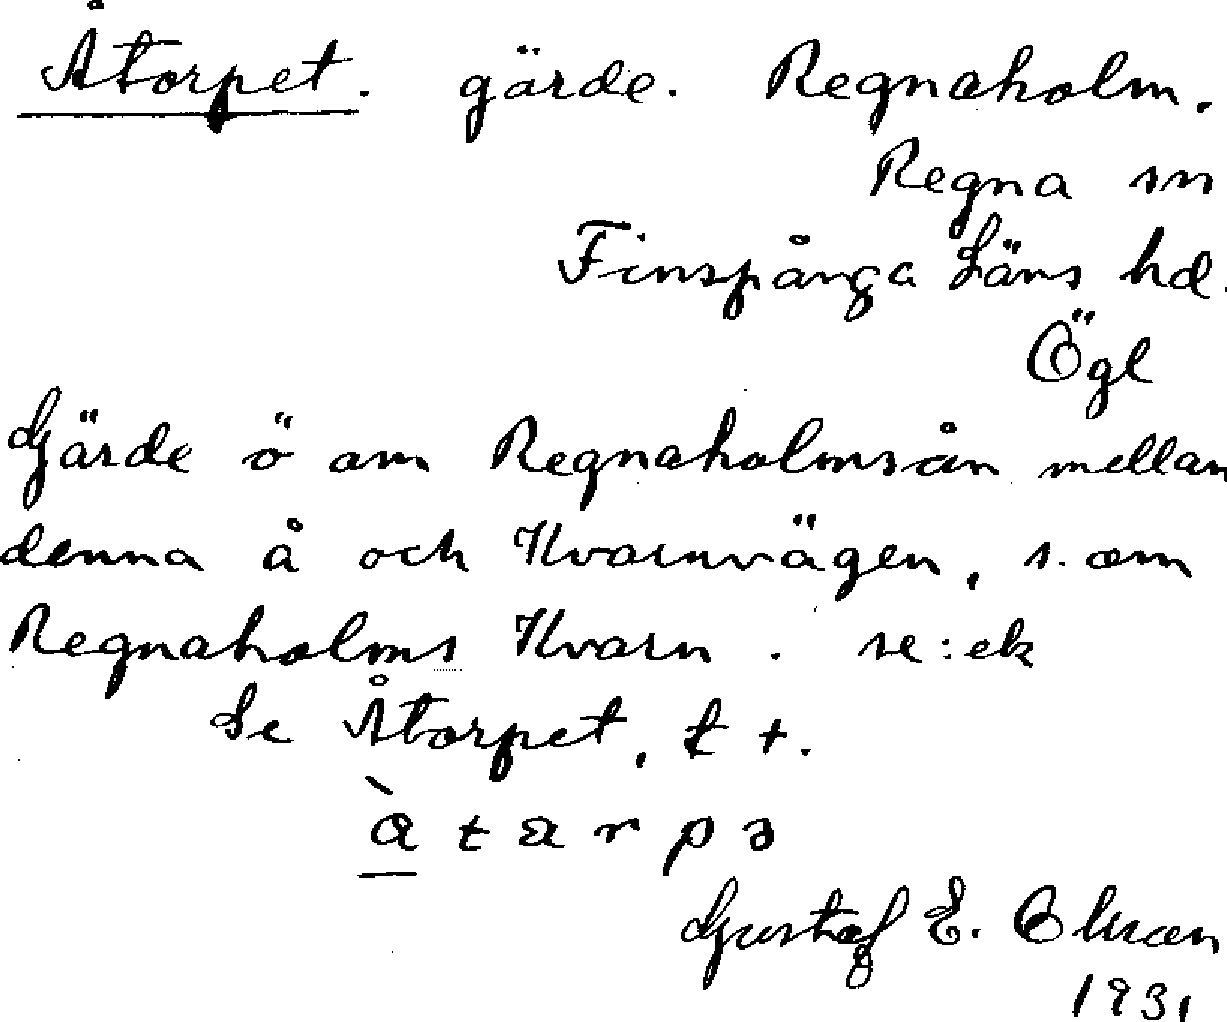 Åtorpet. gärde. Regnaholm.
Regna sn
Finspånga Läns hd.
Ögl
Gärde ö om Regnaholmsån mellan
denna å och Kvarnvägen, s. om
Regnaholms Kvarn. se: ek
Se Åtorpet, t +.
Gustaf E. Ohman
1931